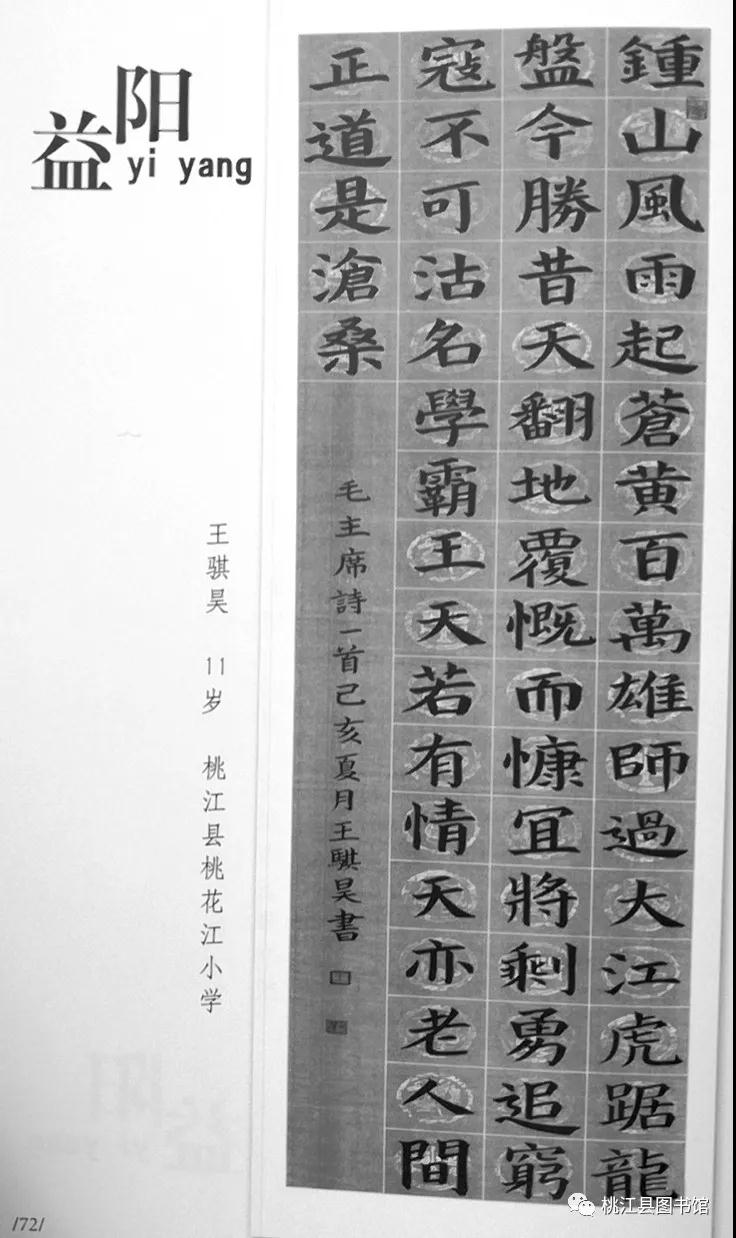 益阳
yi yang
鍾山風雨起蒼黄百萬雄師過大江虎踞龍
盤今勝昔天翻地覆慨而慷宜將剩勇追窮
寇不可沽名學霸王天若有情天亦老人間
正道是滄桑
毛主席詩一首己亥夏月王騏昊書
王骐昊 11岁 桃江县桃花江小学
/72/
桃江县图书馆